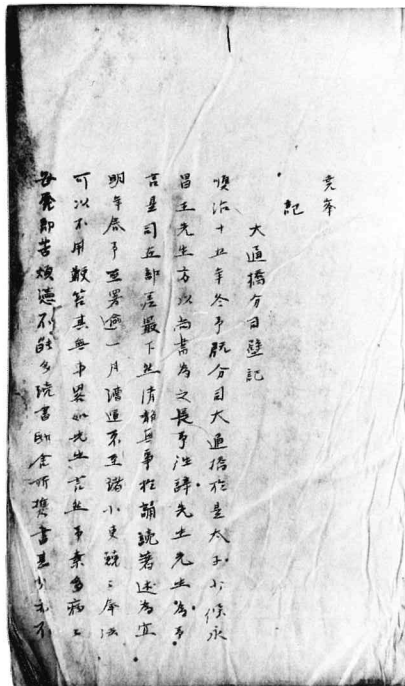 堯峯
記
大通橋分司壁記
順治十五年冬予既分司大通橋於是太子少保永
昌王先生方以尚書為之長予往辭先生先生為予
言是司在部差最下然清散無事於誦讀著述為宜
明年春予至署逾一月漕運不至諸小吏兢〻奉法
可以不用鞭笞其無事畧如先生言然予素多病又
每覽即苦煩懣不能多讀書所攜書甚少尤不